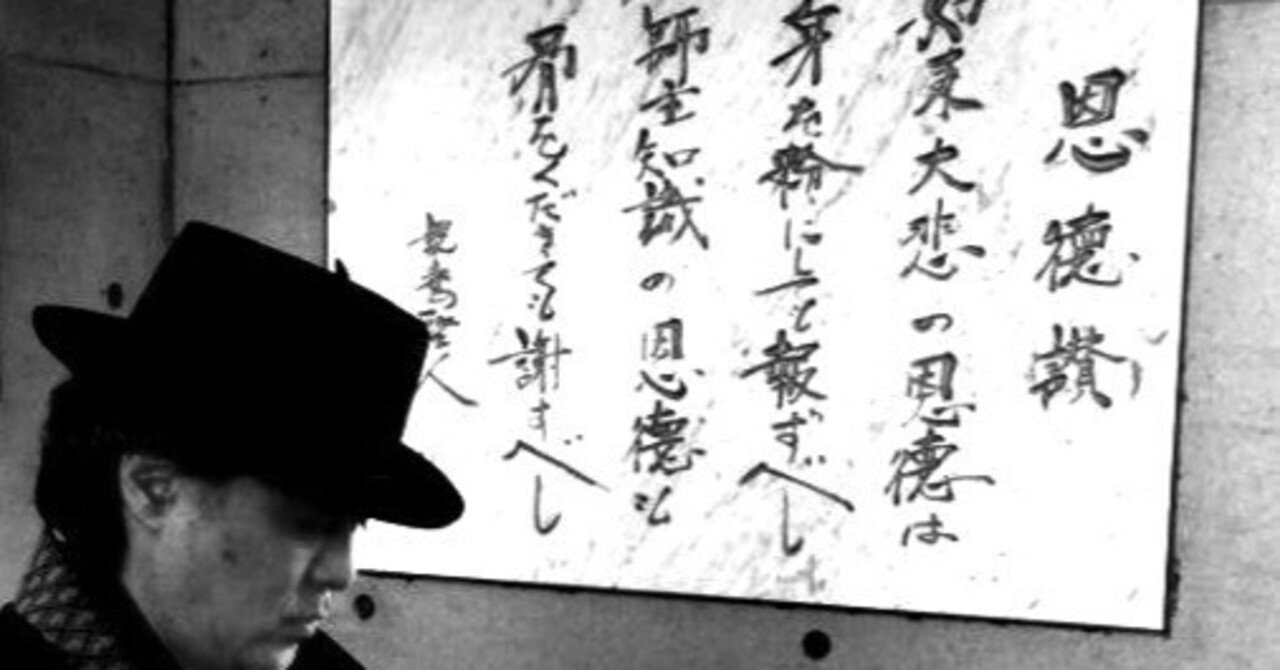 恩徳讃
如来大悲の恩徳は
身を粉にしても報ずべし
師主知識の恩徳も
骨をくだきても謝すべし
親鸞聖人